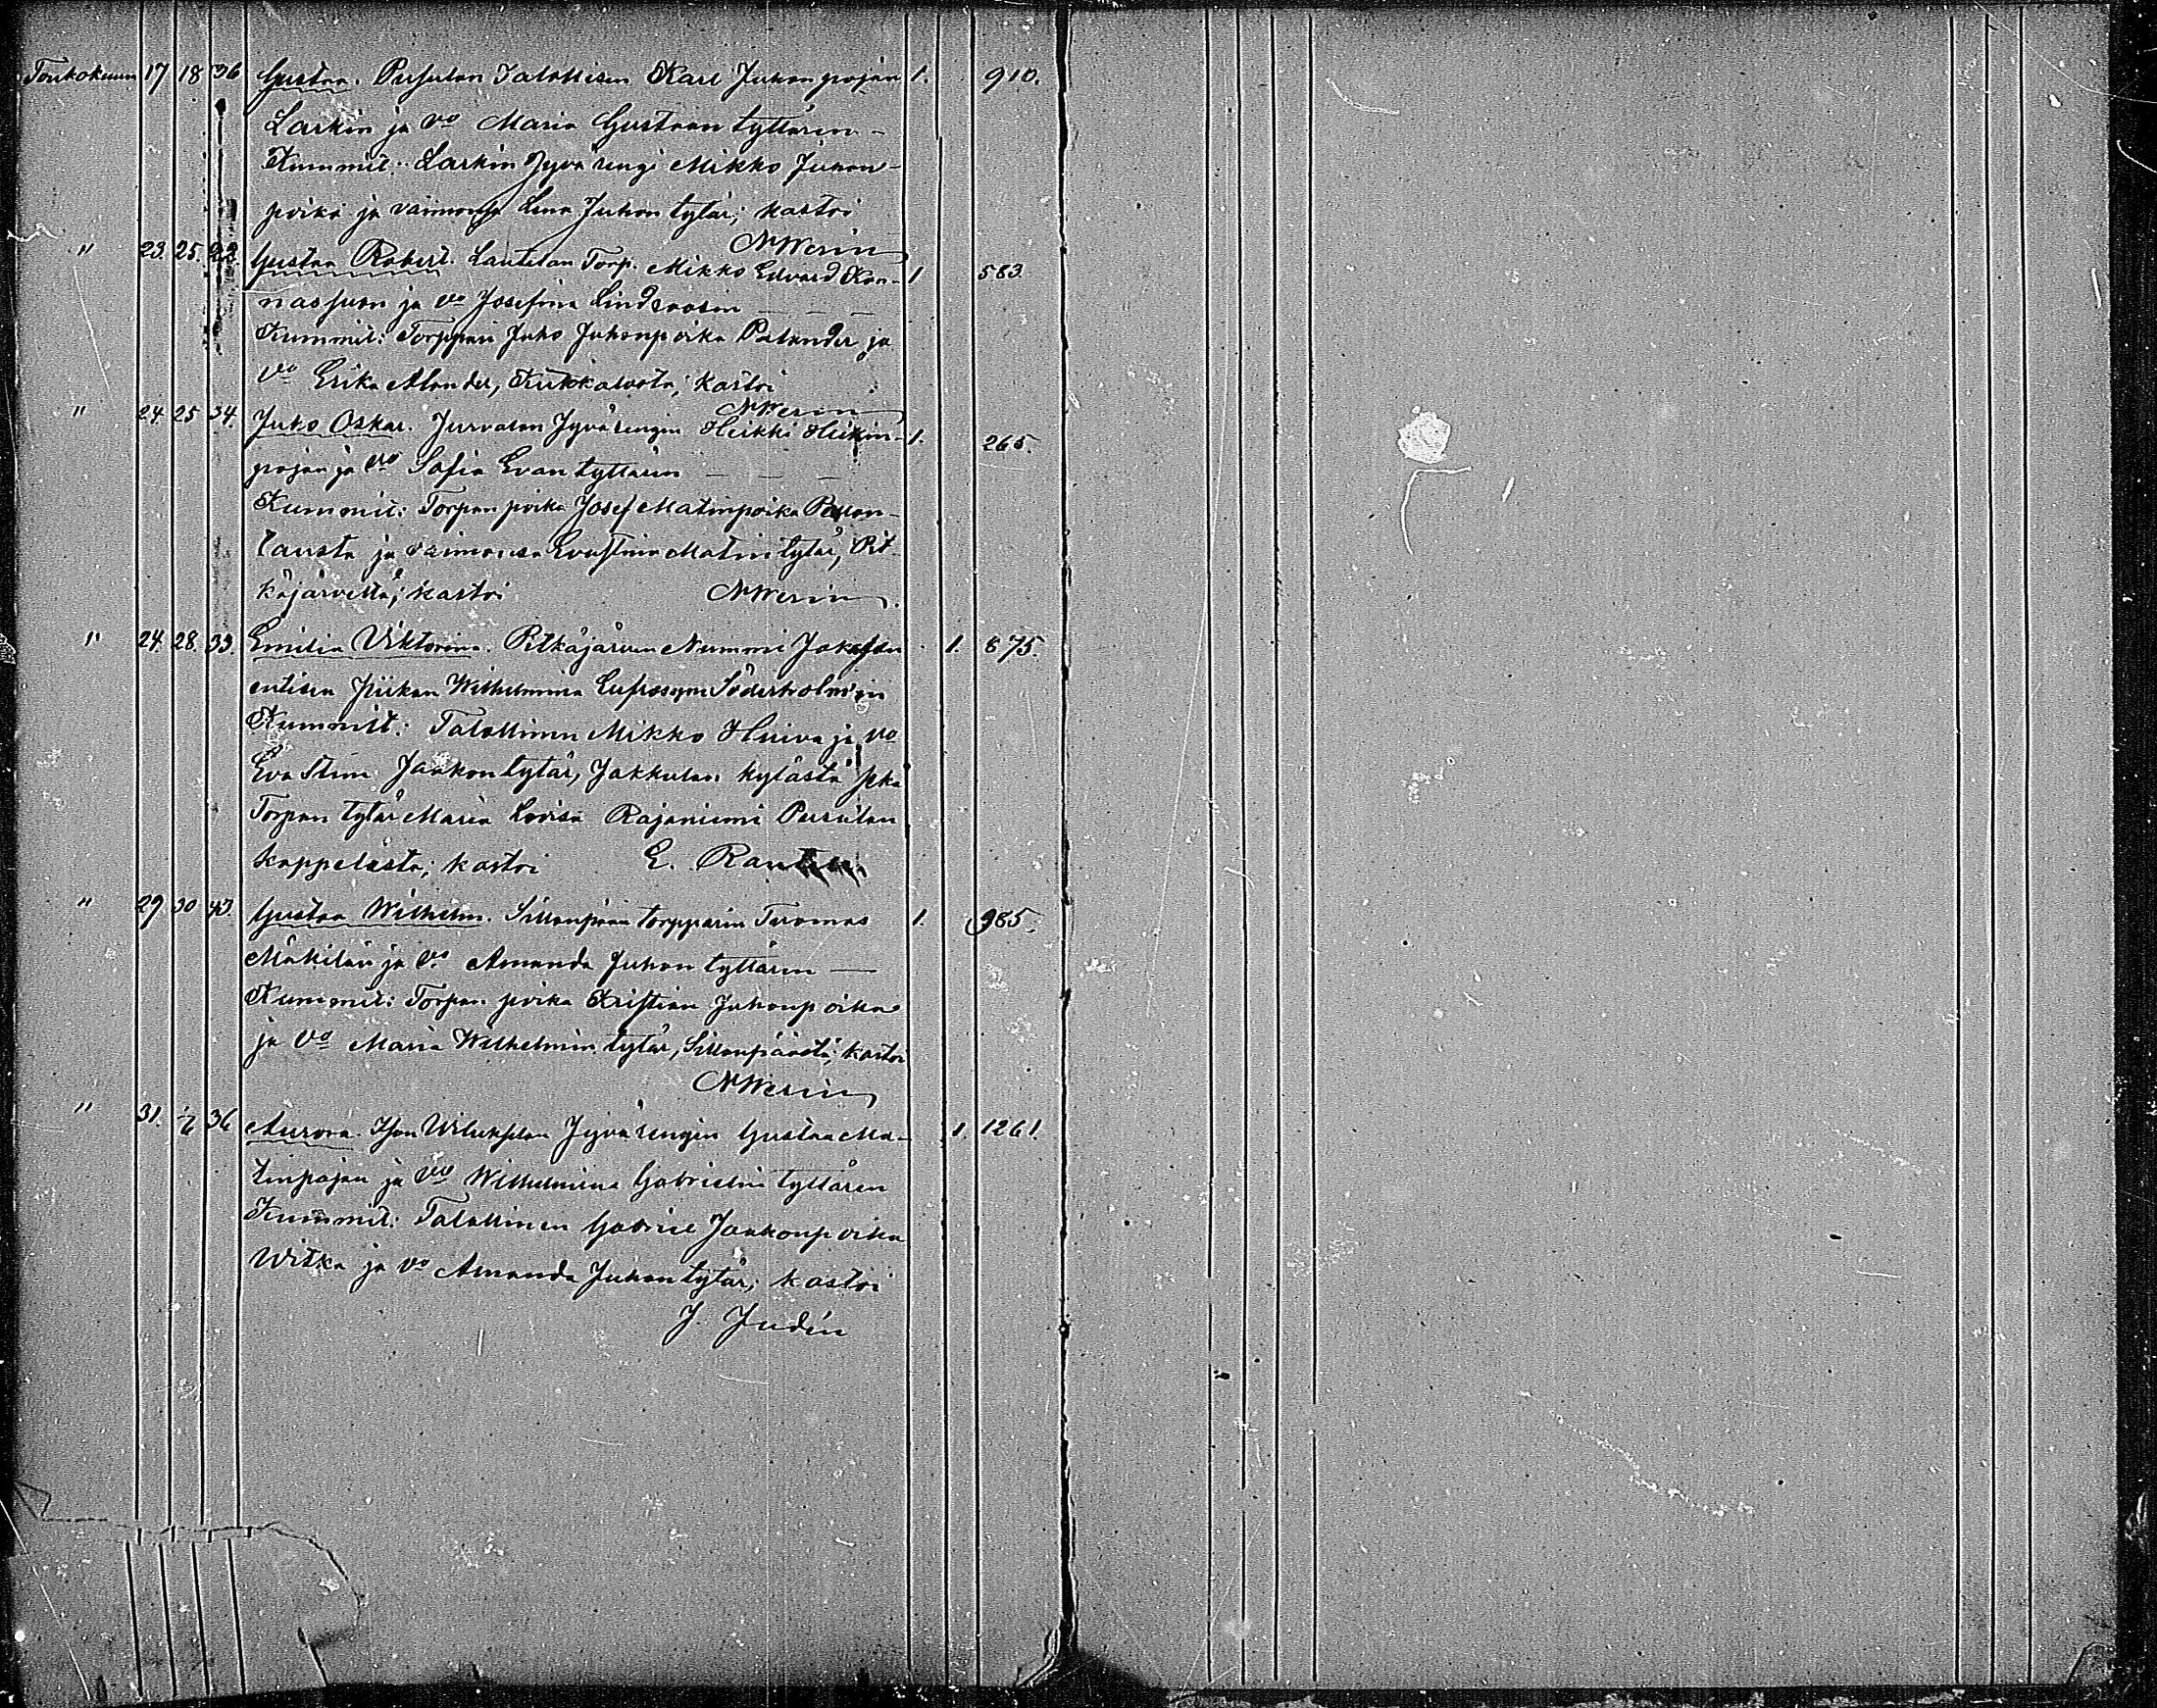 Toukokuun 17 18 36 Gustaa. Pusulan Talollisen Karl Juhonpojan 1. 910.
Larkin ja vo Maria Gustaan tyttären -
Kummit: Larkin Jyvä rengi Mikko Juhon-
poika ja vaimonsa Lena Juhon tytär; kastoi
NWerin
" 23. 25. 22. Gustaa Robert. Lautelan Torp. Mikko Edvard Kon- 1 583.
ja vo Josefina Lindroosin - - -
Kummit: Torppari Juho Juhonpoika Palander ja
vo Erika Alander, kastoi
NWerin
" 24. 25 34. Juho Oskar. Jyvärengin Heikki Heikin- 1. 265.
pojan ja vo Sofia Evan tyttären - - -
Kummit: Torpan poika Josef Matinpoika
tausta ja vaimonsa Matintytär, Pit-
käjärveltä; kastoi NWerin.
" 24. 28. 33. Emilia Viktorina. Pitkäjärven Nummi 1. 875.
entisen piikan Wilhelmina Eufrosyne Söderholmin
Kummit: Talollinen Mikko ja vo
Eva Stina Jaakontytär, Jakkulan kylästä
Torpan tytär Maria Lovisa Rajaniemi Pusulan
kappelista; kastoi E.
" 29 30 43. Gustaa Wilhelm. Sillanpään torpparin Tuomas 1. 985.
Mäkilän ja vo Amanda Juhon tyttären —
Kummit: Torpan poika Kristian Juhonpoika
ja vo Maria Wilhelmin tytär, Sillanpäästä; kastoi
NWerin
" 31. 36 Aurora. Jyvärengin Gustaa Ma- 1. 1261.
tinpojan ja vo Wilhelmina Gabrielin tyttären
Kummit: Talollinen Gabriel Jaakonpoika
Witka ja vo Amanda Juhontytär; kastoi
J. Judén